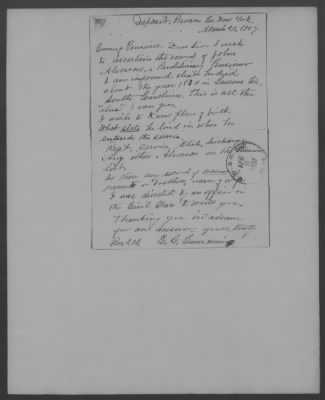 Deposit, New York
March 21, 1907
Comr Pensions. Dear Sir I wish
to ascertain the record of John
Alverson, a Revolutionary Pensioner
I am informed that he died
about the year 18 in Laurens Co,
South Carolina. This is all the
"clue" I can give.
I wish to know place of birth.
What state he lived in when he
entered the service
Reg't, service, State,
Any other Alverson on the Pension
list.
Is there any record of
parents or brothers, name of wife
I was directed by an officer in
the Civil War to write you.
Thanking you in advance
for an answer, yours truly